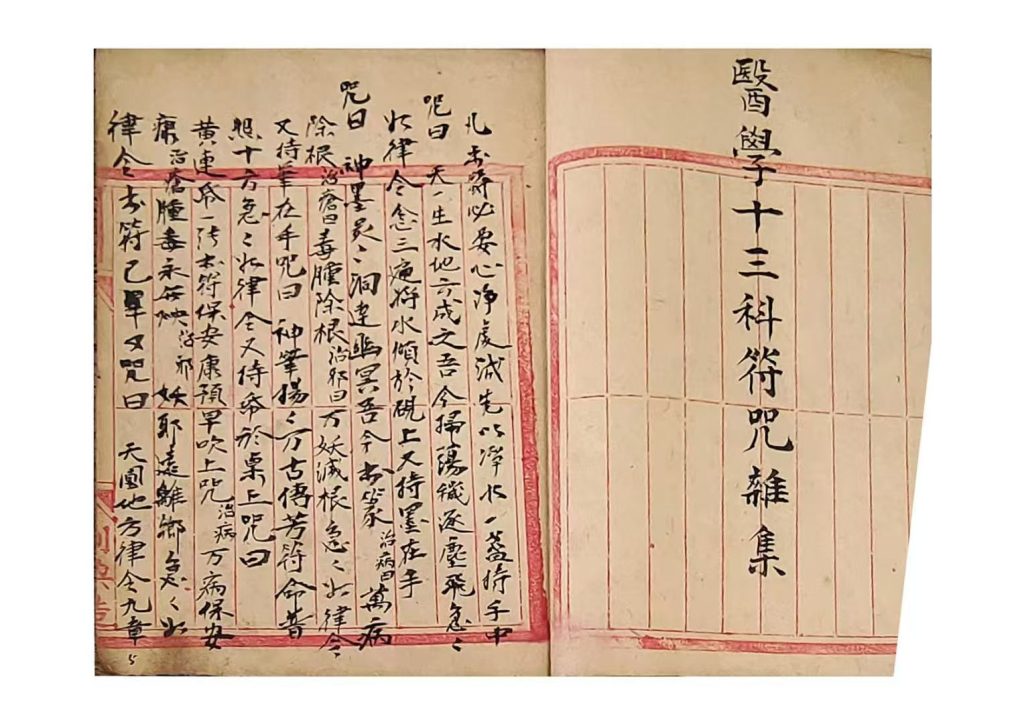 醫學十三科符咒雜集
凡書符必要心淨虔诚先以淨水一盏持手中
咒曰 天一生水地六成之吾今掃蕩穢逐塵飛急々
如律令念三遍將水傾於硯上又持墨在手
咒曰 神墨灵々洞達幽冥吾今書篆治病曰萬病
除根治瘡曰毒腫除根治邪曰万妖滅根急々如律令
又持筆在手咒曰 神筆揚々万古傳芳符命普
照十方急々如律令又侍帋於桌上咒曰
黄連帋一张書符保安康預早吹上咒治病万病保安
康治瘡腫毒永無殃治邪妖耶遠離鄉急々如
律令書符已畢又咒曰 天圓地方律令九章
5